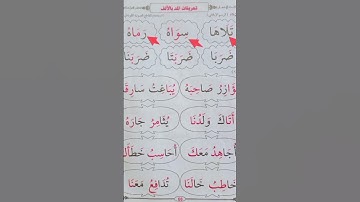 تدريبات المد بالألف
تَلَاهَا سِوَاهُ رَمَاهُ
ضَرَبَا ضَرَبَتَا ضَرَبْنَا
صَاحِبَهُ يُبَاغِتُ سَارِقًا
أَتَاكَ وَلَدُنَا يُثَامِرُ جَارَهُ
أُجَاهِدُ مَعَكَ أُحَاسِبُ
خَالَنَا تُدَافِعُ مَعَنَا